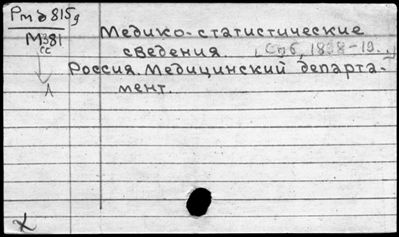 Рт д 815g
М381
сс
Медико-статистические
сведения. Спб, 18
Россия. Медицинский департа-
мент.